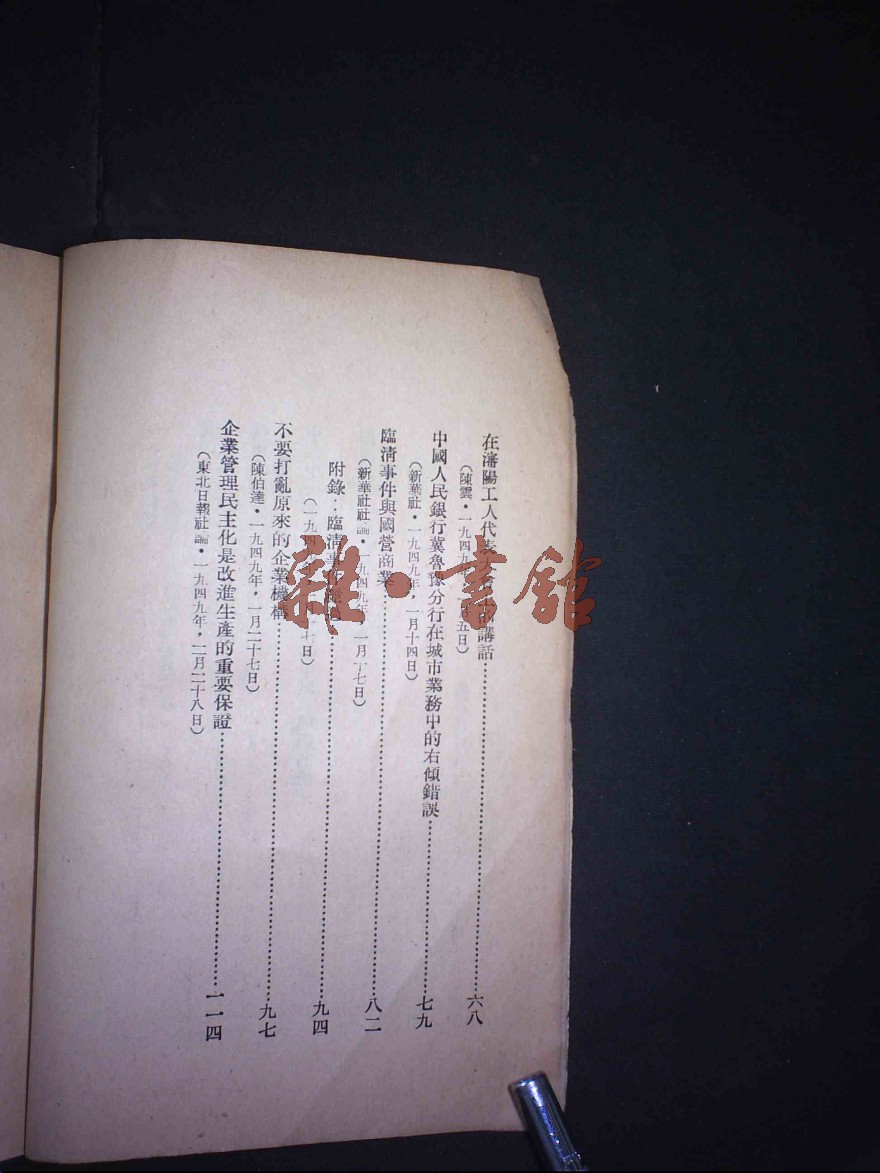 在瀋陽工人代表大會上的講話……六八
(陳雲·一九四九年 五日)
中國人民銀行冀魯豫分行在城市業務中的右傾錯誤……七九
(新華社·一九四九年,一月十四日)
臨淸事件與國營商業……八二
(新華社社論·一九四九年,一月十七日)
附錄:臨淸事件……九四
(一九四 十日)
不要打亂原來的企業機構……九七
(陳伯達·一九四九年,一月二十七日)
企業管理民主化是改進生產的重要保證……一一四
(東北日報社論·一九四九年,二月二十八日)
雜·書館